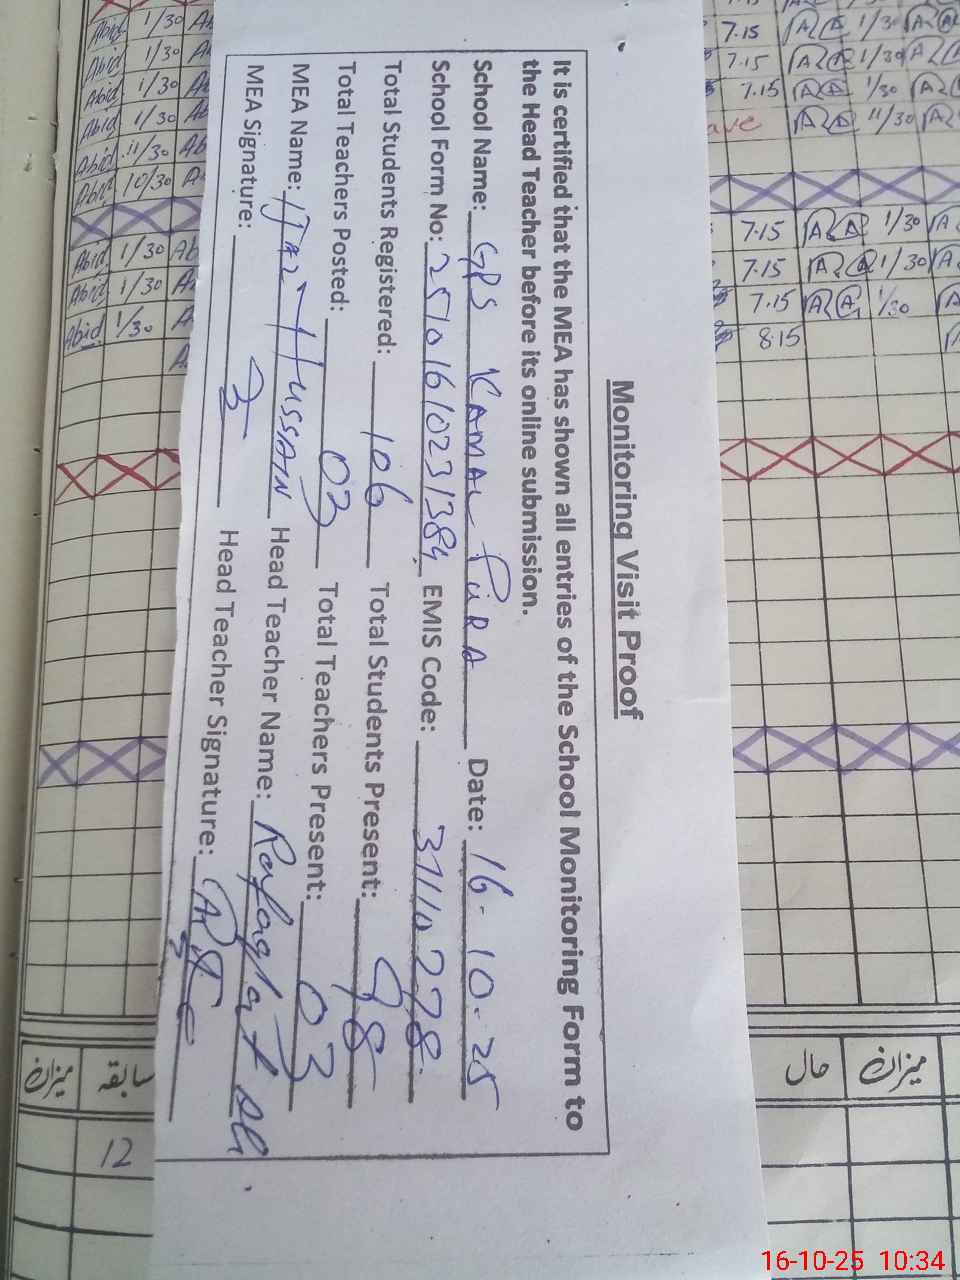 Monitoring Visit Proof
It is certified that the MEA has shown all entries of the School Monitoring Form to
the Head Teacher before its online submission.
School Name: GPS KAMAL PURA Date: 16-10-25
School Form No: 25101610231384 EMIS Code: 37110278
Total Students Registered: 106 Total Students Present: 98
Total Teachers Posted: 03 Total Teachers Present: 03
MEA Name: Ijaz Hussain Head Teacher Name: Rafaqat Ali
MEA Signature: Head Teacher Signature:
Abid 1/30
Abid 1/30
Abid 1/30
Abid 1/30
Abid 11/30
Abid 10/30
Abid 1/30
Abid 1/30
Abid 1/30
7.15 1/30
7.15 1/30
7.15 1/30
11/30
7.15 1/30
7.15 1/30
7.15 1/30
8.15
میزان سابقہ
حال میزان
12
16-10-25 10:34